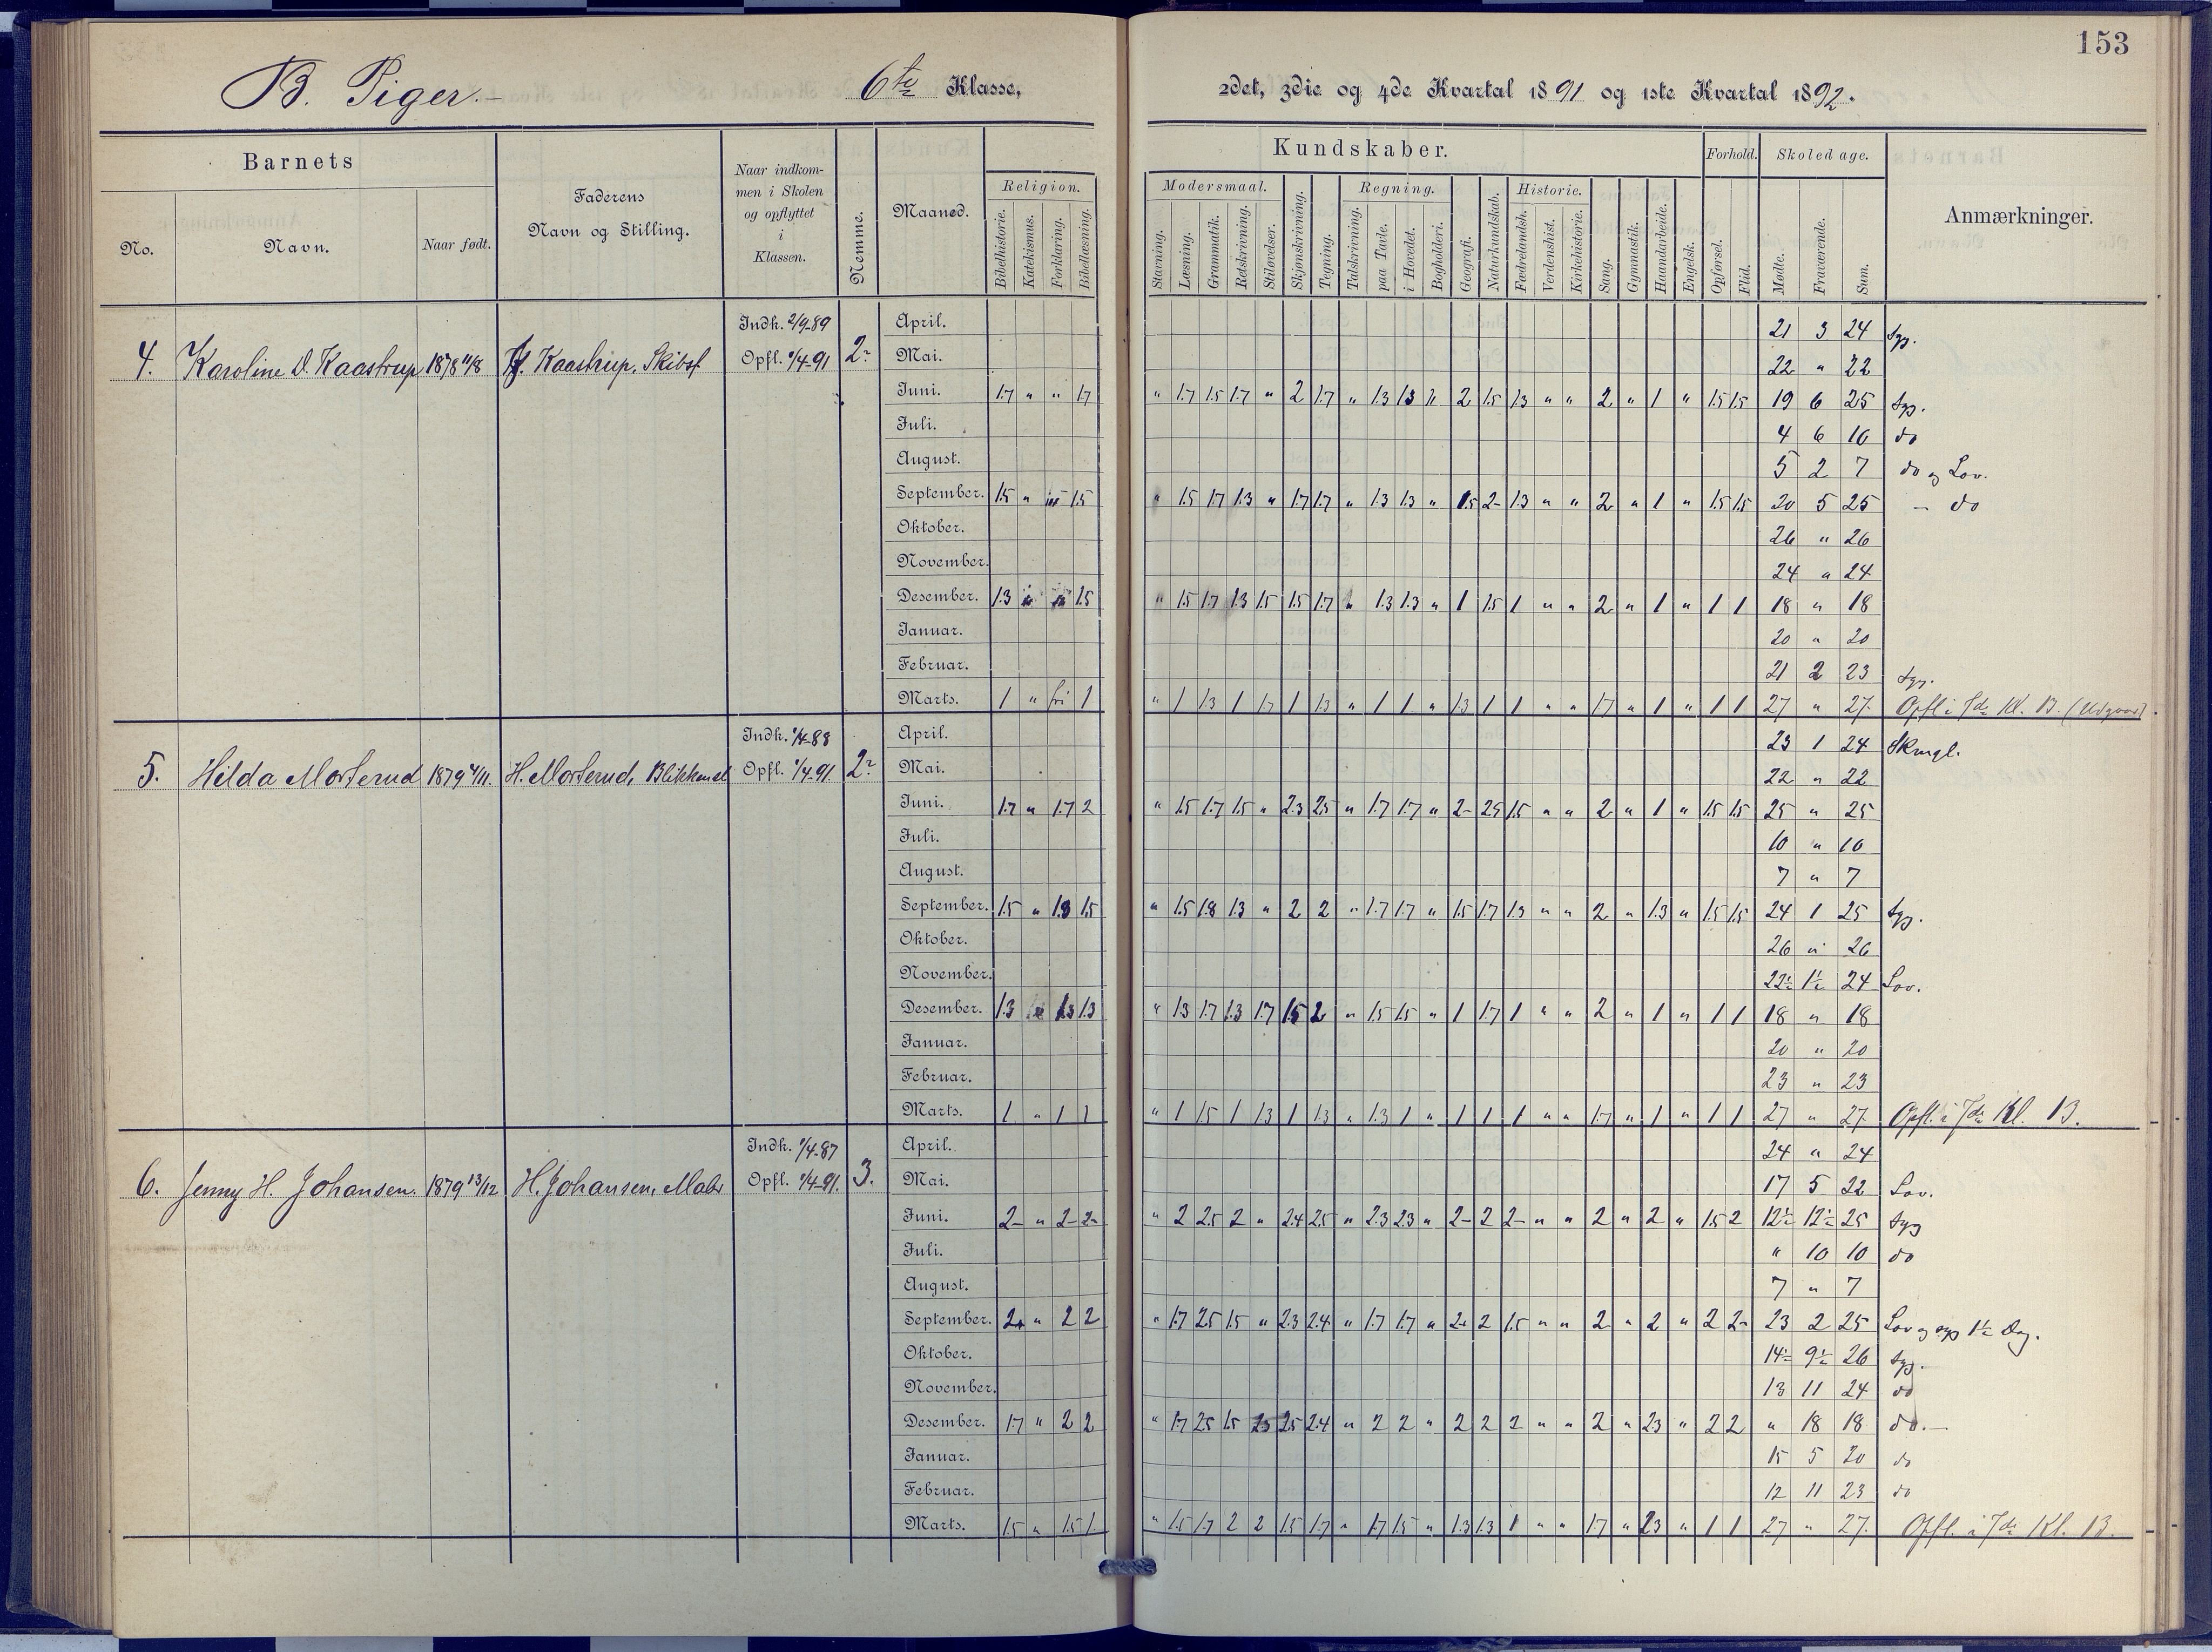 153
B. Piger.-
6te Klasse,
2det, 3die og 4de Kvartal 1891 og 1ste Kvartal 1892.
Barnets
No.
Navn.
Naar født.
Faderens
Navn og Stilling.
Naar indkom-
men i Skolen
og opflyttet
i
Klassen.
Nemme.
Maaned.
Kundskaber.
Religion.
Bibelhistorie.
Katekismus.
Forklaring.
Bibellæsning.
Modersmaal.
Stavning.
Læsning.
Grammatik.
Retskrivning.
Stiløvelser.
Skjønskrivning.
Tegning.
Regning.
Talskrivning.
paa Tavle.
i Hovedet.
Bogholderi.
Geografi.
Naturkundskab.
Historie.
Fædrelandsh.
Verdenshist.
Kirkehistorie.
Sang.
Gymnastik.
Haandarbeide.
Engelsk.
Forhold.
Opførsel.
Flid.
Skoledage.
Mødte.
Fraværende.
Sum.
Anmærkninger.
4. Karoline D. Kaastrup 1878 11/8 Kaastrup, Skibsf. Indh. 2/9-89 Opfl. 1/4-91 2-
April. 21 3 24 Syg.
Mai. 22 " 22
Juni. 1.7 " " 1.7 " 1.7 1.5 1.7 " 2 1.7 " 1.3 1.3 " 2 1.5 1.3 " " 2 " 1 " 1.5 1.5 19 6 25 Syg.
Juli. 4 6 10 do
August. 5 2 7 do og Lov.
September. 1.5 " 1.5 " 1.5 1.7 1.3 " 1.7 1.7 " 1.3 1.3 " 1.5 2- 1.3 " " 2 " 1 " 1.5 1.5 20 5 25 - do
Oktober. 26 " 26
November. 24 " 24
Desember. 1.3 1.5 " 1.5 1.7 1.3 1.5 1.5 1.7 " 1.3 1.3 " 1 1.5 1 " " 2 " 1 " 1 1 18 " 18
Januar. 20 " 20
Februar. 21 2 23 Syg.
Marts. 1 " fri 1 " 1 1.3 1 1.7 1 1.3 " 1 1 " 1.3 1 1 " " 1.7 " 1 " 1 1 27 " 27. Opfl. i 7de Kl. B.
5. Hilda Morterud 1879 4/11. H. Morterud, Blikkensl. Indh. 1/4-88 Opfl. 1/4-91. 2-
April. 23 1 24 Skmgl.
Mai. 22 " 22
Juni. 1.7 " 1.7 2 " 1.5 1.7 1.5 " 2.3 2.5 " 1.7 1.7 " 2- 2.5 1.5 " " 2 " 1 " 1.5 1.5 25 " 25
Juli. 10 " 10
August. 7 " 7
September. 1.5 " 1.3 1.5 " 1.5 1.8 1.3 " 2 2 " 1.7 1.7 " 1.5 1.7 1.3 " " 2 " 1.3 " 1.5 1.5 24 1 25 Syg.
Oktober. 26 " 26
November. 22½ 1½ 24 Lov.
Desember. 1.3 1.3 1.3 " 1.3 1.7 1.3 1.7 1.5 2 " 1.5 1.5 " 1 1.7 1 " " 2 " 1 " 1 1 18 " 18
Januar. 20 " 20
Februar. 23 " 23
Marts. 1 " 1 1 " 1 1.5 1 1.3 1 1.3 " 1.3 1 " 1 1 1 " " 1.7 " 1 " 1 1 27 " 27. Opfl. i 7de Kl. B.
6. Jenny H. Johansen. 1879 13/12 H. Johansen, Maler Indh. 1/4-87 Opfl. 1/4-91. 3.
April. 24 " 24
Mai. 17 5 22 Lov.
Juni. 2- " 2- 2- " 2 2.5 2 " 2.4 2.5 " 2.3 2.3 " 2- 2 2- " " 2 " 2 " 1.5 2 12½ 12½ 25 Syg
Juli. " 10 10 do
August. 7 " 7
September. 2 " 2 2 " 1.7 2.5 1.5 " 2.3 2.4 " 1.7 1.7 " 2- 2 1.5 " " 2 " 2 " 2 2- 23 2 25 Lov og syg 1½ Dag.
Oktober. 14½ 9½ 26 Syg.
November. 13 11 24 do
Desember. 1.7 " 2 2 " 1.7 2.5 1.5 2.5 2.5 2.4 " 2 2 " 2 2 2 " " 2 " 2.3 " 2 2 " 18 18 do.-
Januar. 15 5 20 do
Februar. 12 11 23 do
Marts. 1.5 " 1.5 1. " 1.5 1.7 2 2 1.5 1.7 " 1.7 1.5 " 1.3 1.3 1 " " 1.7 " 2.3 " 1 1 27 " 27. Opfl. i 7de Kl. B.